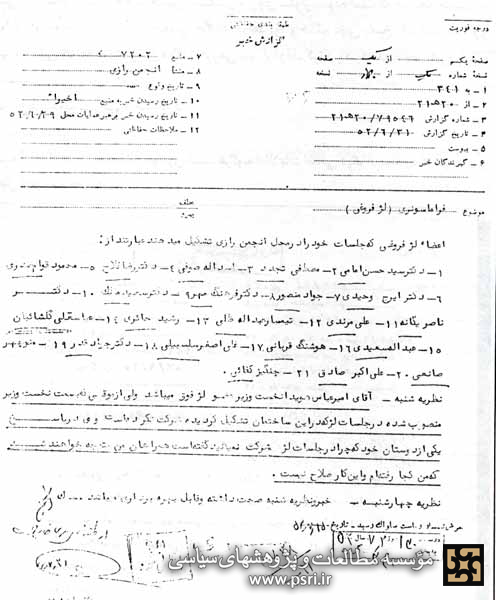 طبقه بندی حفاظتی
گزارش خبر
درجه فوریت
صفحه یکم از یک صفحه
نسخه شماره یک از چهار نسخه
۱ - به ۳۴۱
۲ - از ۲۰ ه ۲۱
۳ - شماره گزارش
۴ - تاریخ گزارش ۵۲/۶/۳۱
۵ - پیوست
۶ - گیرندگان خبر
۷ - منبع ۷۲۰۲
۸ - منشأ انجمن رازی
۹ - تاریخ وقوع
۱۰ - تاریخ رسیدن خبر به منبع اخیرا
۱۱ - تاریخ رسیدن خبر به رهبر عملیات محل ۵۲/۶/۲۹
۱۲ - ملاحظات حفاظتی
موضوع فراماسونری (لژ فروغی)
اعضاء لژ فروغی که جلسات خود را در محل انجمن رازی تشکیل میدهند عبارتند از :
۱ - دکتر سید حسن امامی ۲ - مصطفی تجدد ۳ - اسداله صوفی ۴ - دکتر رضا فلاح ۵ - محمود قوام صدری
۶ - دکتر ایرج وحیدی ۷ - جواد منصور ۸ - دکتر فرهنگ مهر ۹ - دکتر سعید مالک ۱۰ - دکتر
ناصر یگانه ۱۱ - علی مرندی ۱۲ - تیمسار عبداله ظلی ۱۳ - رشید حائری ۱۴ - عباسقلی گلشائیان
۱۵ - عبداله سعیدی ۱۶ - هوشنگ قربانی ۱۷ - علی اصغر سلسبیلی ۱۸ - دکتر جواد صدر ۱۹ - منوچهر
صانعی ۲۰ - علی اکبر صادقی ۲۱ - چنگیز کفائی
نظریه شنبه - آقای امیرعباس هویدا نخست وزیر عضو لژ فوق میباشد ولی از بوقتی که بسمت نخست وزیر
منصوب شده در جلسات لژ که در این ساختمان تشکیل گردیده شرکت نکرده است و در پاسخ
یکی از دوستان خود که چرا در جلسات لژ شرکت نمیکنید گفته است همراهان من نیز میخواهند
که من کجا رفته‌ام و این کار صلاح نیست .
نظریه چهارشنبه - خبر و نظریه شنبه صحت داشته و قابل بهره برداری میباشد
مؤسسه مطالعات و پژوهشهای سیاسی
www.psri.ir